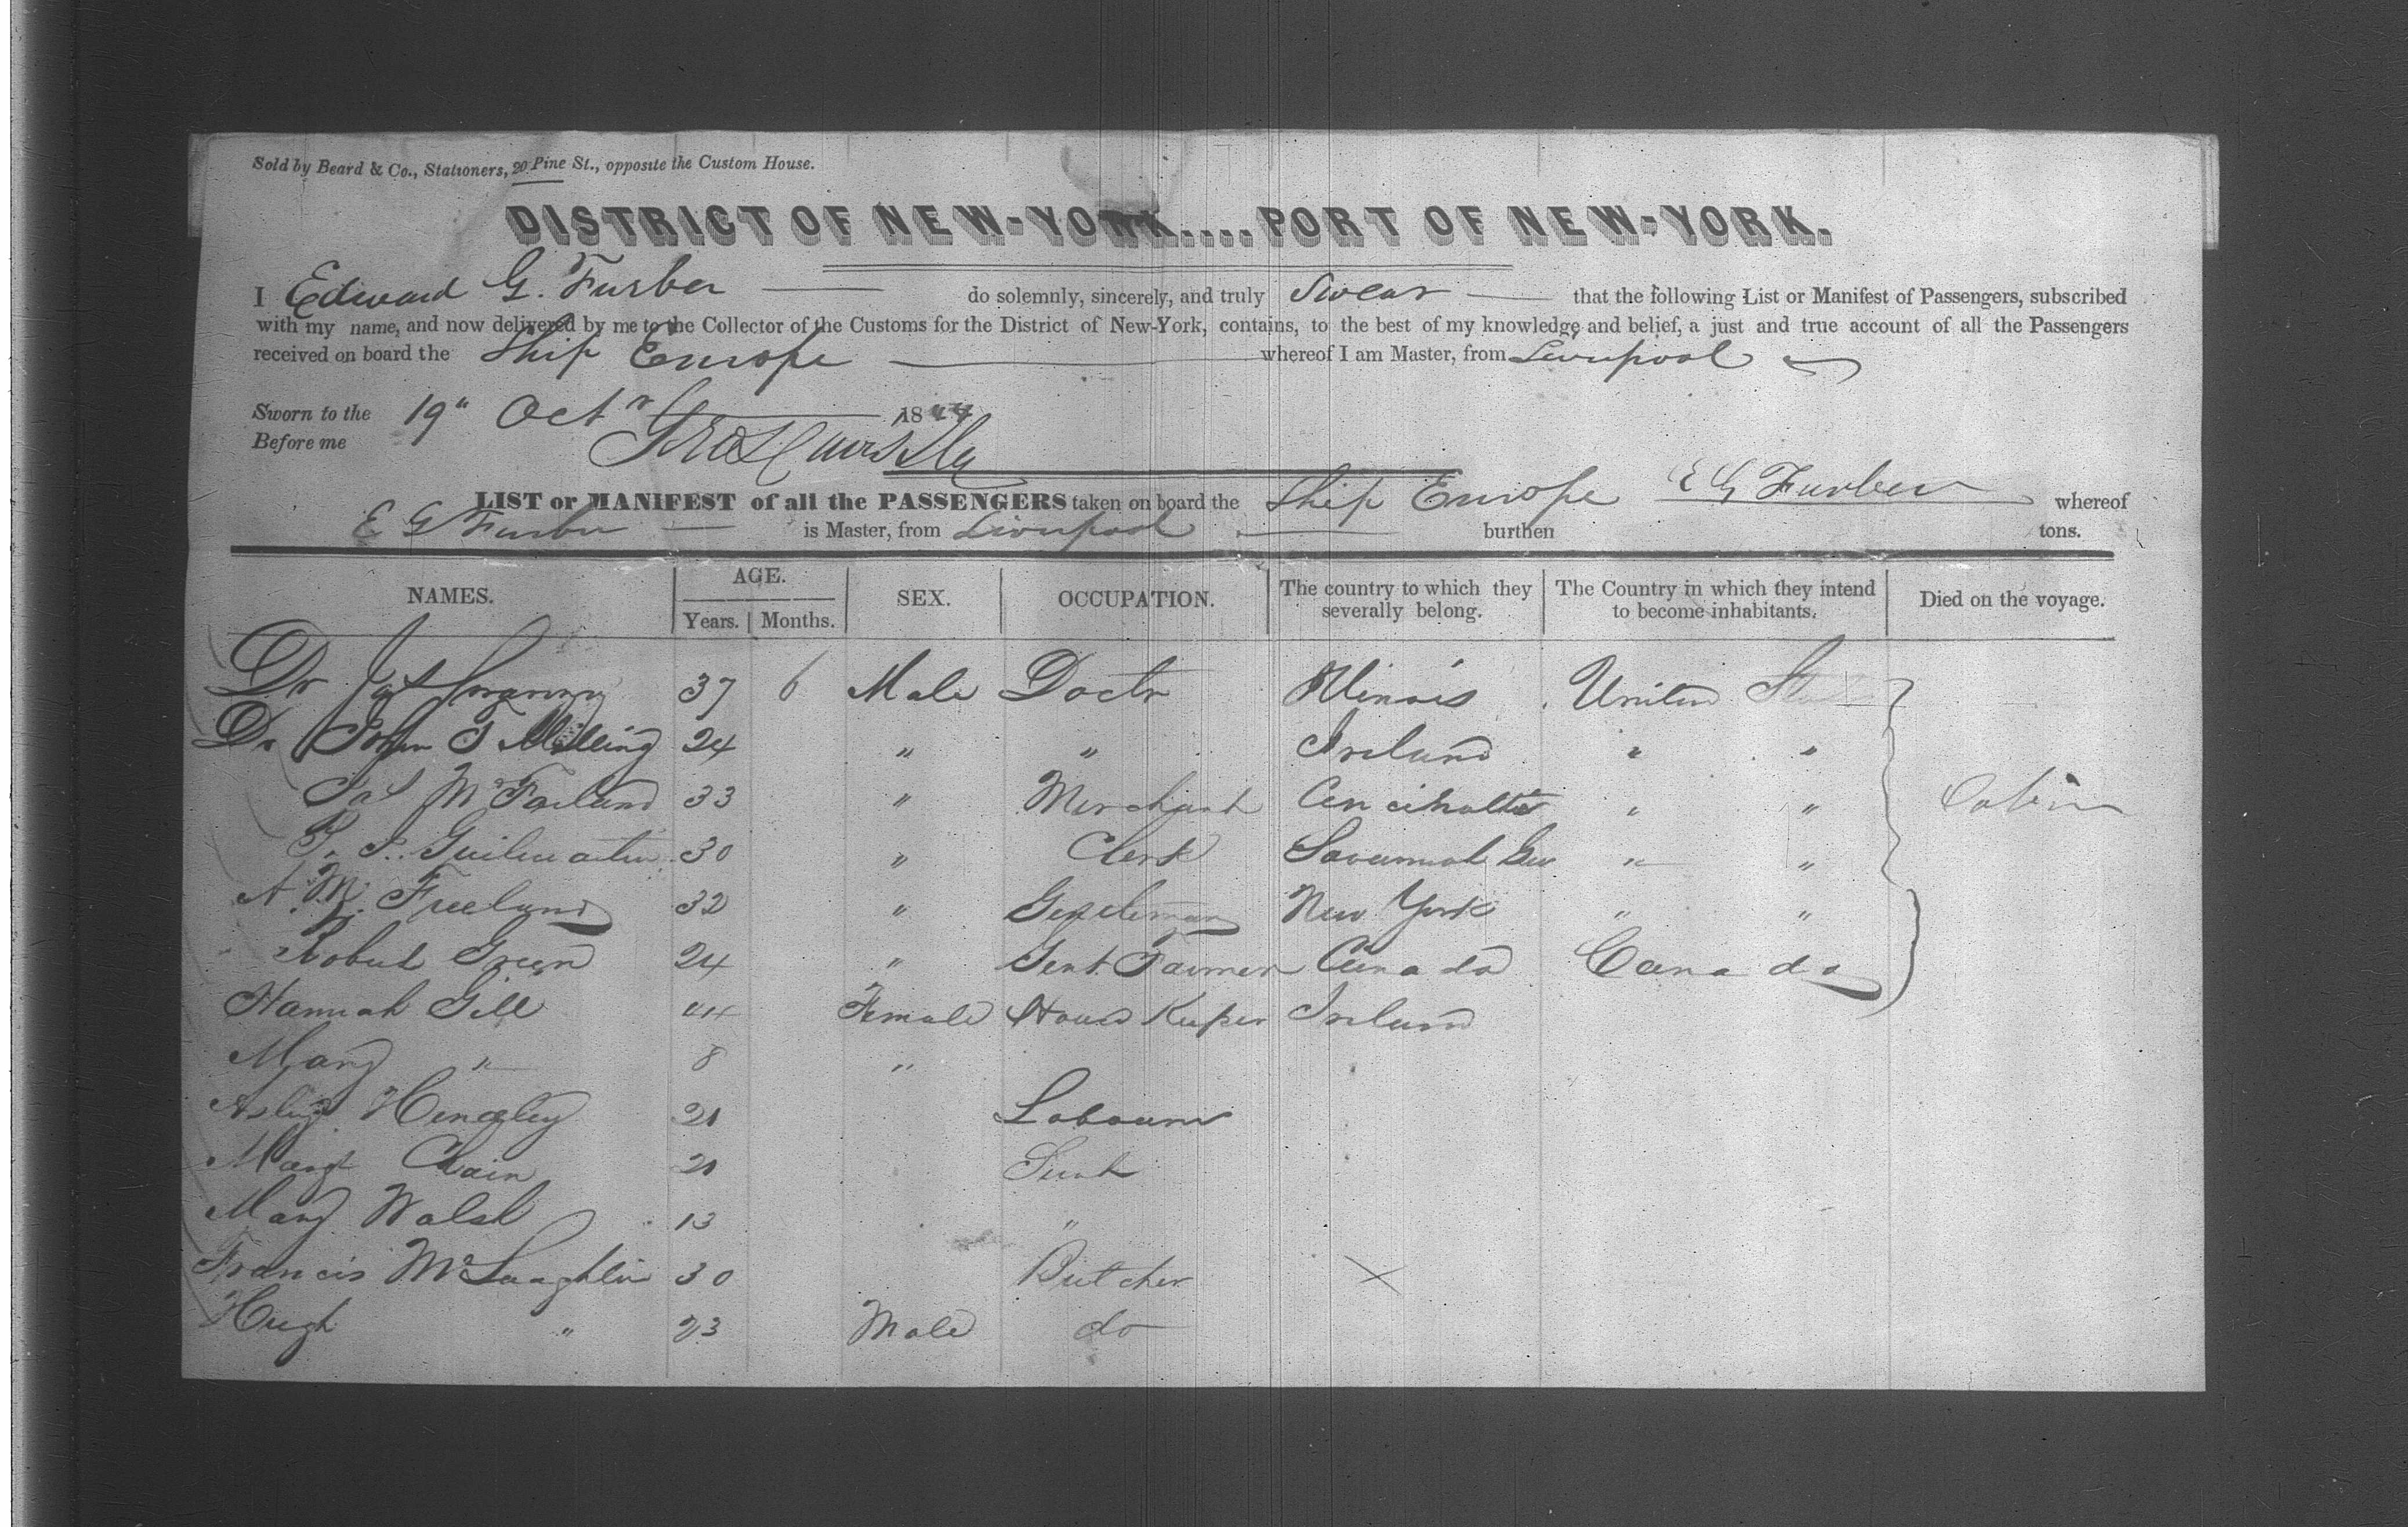 Sold by Beard & Co., Stationers, 20 Pine St., opposite the Custom House.
DISTRICT OF NEW-YORK....PORT OF NEW-YORK.
I Edward G. Furber do solemnly, sincerely, and truly Swear that the following List or Manifest of Passengers, subscribed
with my name, and now delivered by me to the Collector of the Customs for the District of New-York, contains, to the best of my knowledge and belief, a just and true account of all the Passengers
received on board the Ship Europe whereof I am Master, from Liverpool
Sworn to the 19" Octr 1844
Before me
E G Furber
LIST or MANIFEST of all the PASSENGERS taken on board the Ship Europe whereof
E G Furber is Master, from Liverpool burthen tons.
NAMES. AGE. Years. Months. SEX. OCCUPATION. The country to which they severally belong. The Country in which they intend to become inhabitants. Died on the voyage.
Dr Jas 37 6 Male Doctr Illinois United States
Dr John T Milling 24 " " Ireland " "
Jas McFarland 33 " Merchant " "
30 " Clerk Savannah Geo " "
Cabin
A. M. Freeland 32 " Gentleman New York " "
Robert Green 24 " Gent Farmer Canada Canada
Hannah Gill 44 Female House Keeper Ireland
Mary " 8 "
Hingley 21 Labourer
Margt Cain 21 Servt
Mary Walsh 13 "
Francis McLaughlin 30 Butcher ×
Hugh " 23 Male do